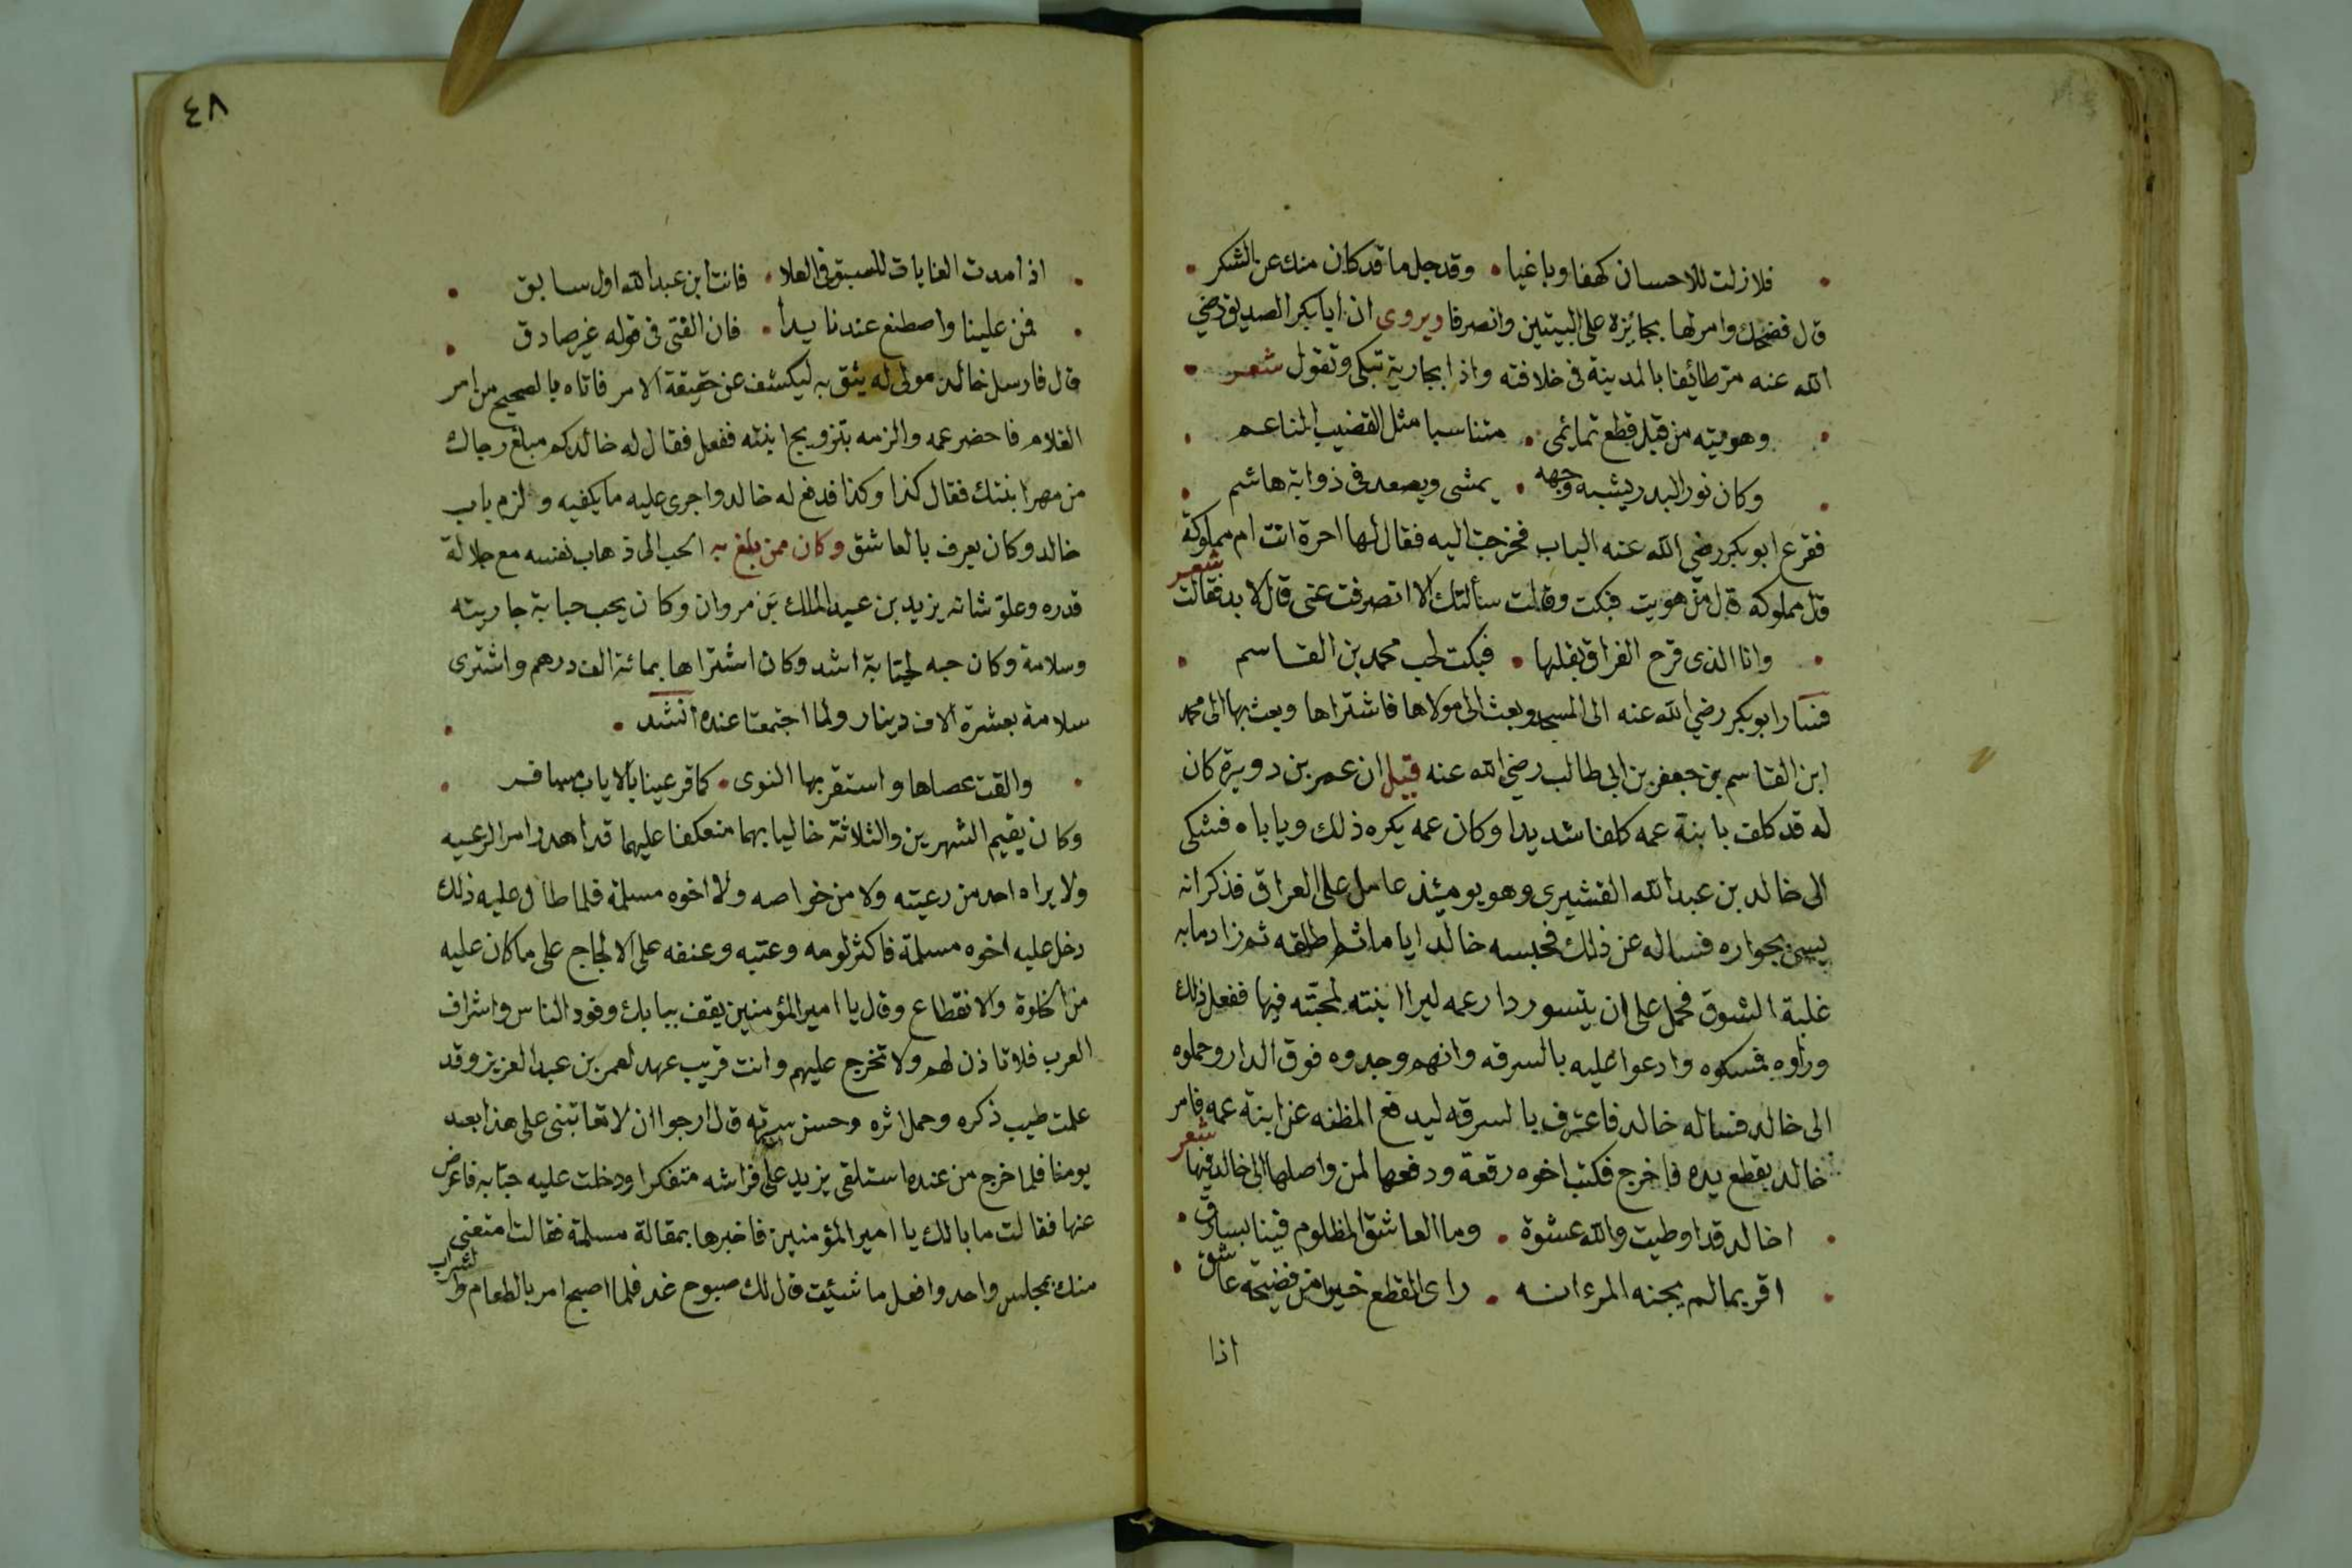 فلا زلت للاحسان كهفا وباغيا • وقد جل ما قد كان منك عن الشكر
قال فضحك وامر لها بجائزة على البيتين وانصرفا ويروى ان ابا بكر الصديق رضي
الله عنه مر طائفا بالمدينة فى خلافته واذا بجارية تبكى وتقول شعر
وهويته من قبل قطع تمائمى • متناسبا مثل القضيب الناعم
وكان نور البدر يشبه وجهه • يمشى ويصعد فى ذوابة هاشم
فقرع ابو بكر رضي الله عنه الباب فخرجت اليه فقال لها احرة انت ام مملوكة
قال مملوكة قال من هويت فبكت وقالت سألتك الا انصرفت عنى قال لا بد فقالت شعر
وانا الذى قرح الفراق بقلبها • فبكت لحب محمد بن القاسم
فسار ابو بكر رضي الله عنه الى المسجد وبعث الى مولاها فاشتراها وبعث بها الى محمد
ابن القاسم بن جعفر بن ابى طالب رضي الله عنه قيل ان عمر بن دويرة كان
له قد كلف بابنة عمه كلفا شديدا وكان عمه يكره ذلك وياباه فشكى
الى خالد بن عبد الله القشيرى وهو يومئذ عامل على العراق فذكر انه
يسئ بجواره فساله عن ذلك فحبسه خالد اياما ثم اطلقه ثم زاد ما به
غلبة الشوق فحمل على ان يتسور دار عمه ليرا ابنته لمحبته فيها ففعل ذلك
وراوه فمسكوه وادعوا عليه بالسرقه وانهم وجدوه فوق الدار وحملوه
الى خالد فساله خالد فاعترف بالسرقه ليدفع المظنه عن ابنة عمه فامر
خالد بقطع يده فاخرج فكتب اخوه رقعة ودفعها لمن واصلها الى خالد فيها شعر
اخالد قد اوطيت والله عشوة • وما العاشق المظلوم فينا بسارق
اقر بما لم يجنه المرء انه • راى القطع خيرا من فضيحة عاشق
اذا
٤٨
اذا مدت الغايات للسبق فى العلا • فانت ابن عبد الله اول سابق
فمن علينا واصطنع عندنا يدا • فان الفتى فى قوله غير صادق
قال فارسل خالد مولى له يثق به ليكشف عن حقيقة الامر فاتاه بالصحيح من امر
الغلام فاحضر عمه والزمه بتزويج ابنته ففعل فقال له خالد كم مبلغ رجاك
من مهر ابنتك فقال كذا وكذا فدفع له خالد واجرى عليه ما يكفيه ولزم باب
خالد وكان يعرف بالعاشق وكان ممن بلغ به الحب الى ذهاب نفسه مع جلالة
قدره وعلو شانه يزيد بن عبد الملك بن مروان وكان يحب حبابة جاريته
وسلامة وكان حبه لحبابة اشد وكان اشتراها بمائة الف درهم واشترى
سلامة بعشرة الاف دينار ولما اجتمعتا عنده انشد •
والقت عصاها واستقر بها النوى • كما قر عينا بالاياب مسافر
وكان يقيم الشهرين والثلاثة خاليا بهما منعكفا عليهما قد اهمل امر الرعيه
ولا يراه احد من رعيته ولا من خواصه ولا اخوه مسلمة فلما طال عليه ذلك
دخل عليه اخوه مسلمة فاكثر لومه وعتبه وعنفه على الالجاج على ما كان عليه
من الخلوة والانقطاع وقال يا امير المؤمنين يقف ببابك وفود الناس واشراف
العرب فلا تاذن لهم ولا تخرج عليهم وانت قريب عهد لعمر بن عبد العزيز وقد
علمت طيب ذكره وحمل اثره وحسن سيرته قال ارجوا ان لا تعاتبنى على هذا بعد
يومنا فلما خرج من عنده استلقى يزيد على فراشه متفكرا ودخلت عليه حبابه فاعرض
عنها فقالت ما بالك يا امير المؤمنين فاخبرها بمقالة مسلمة فقالت امتعنى
منك بمجلس واحد وافعل ما شئت قال لك صبوح غد فلما اصبح امر بالطعام والشراب